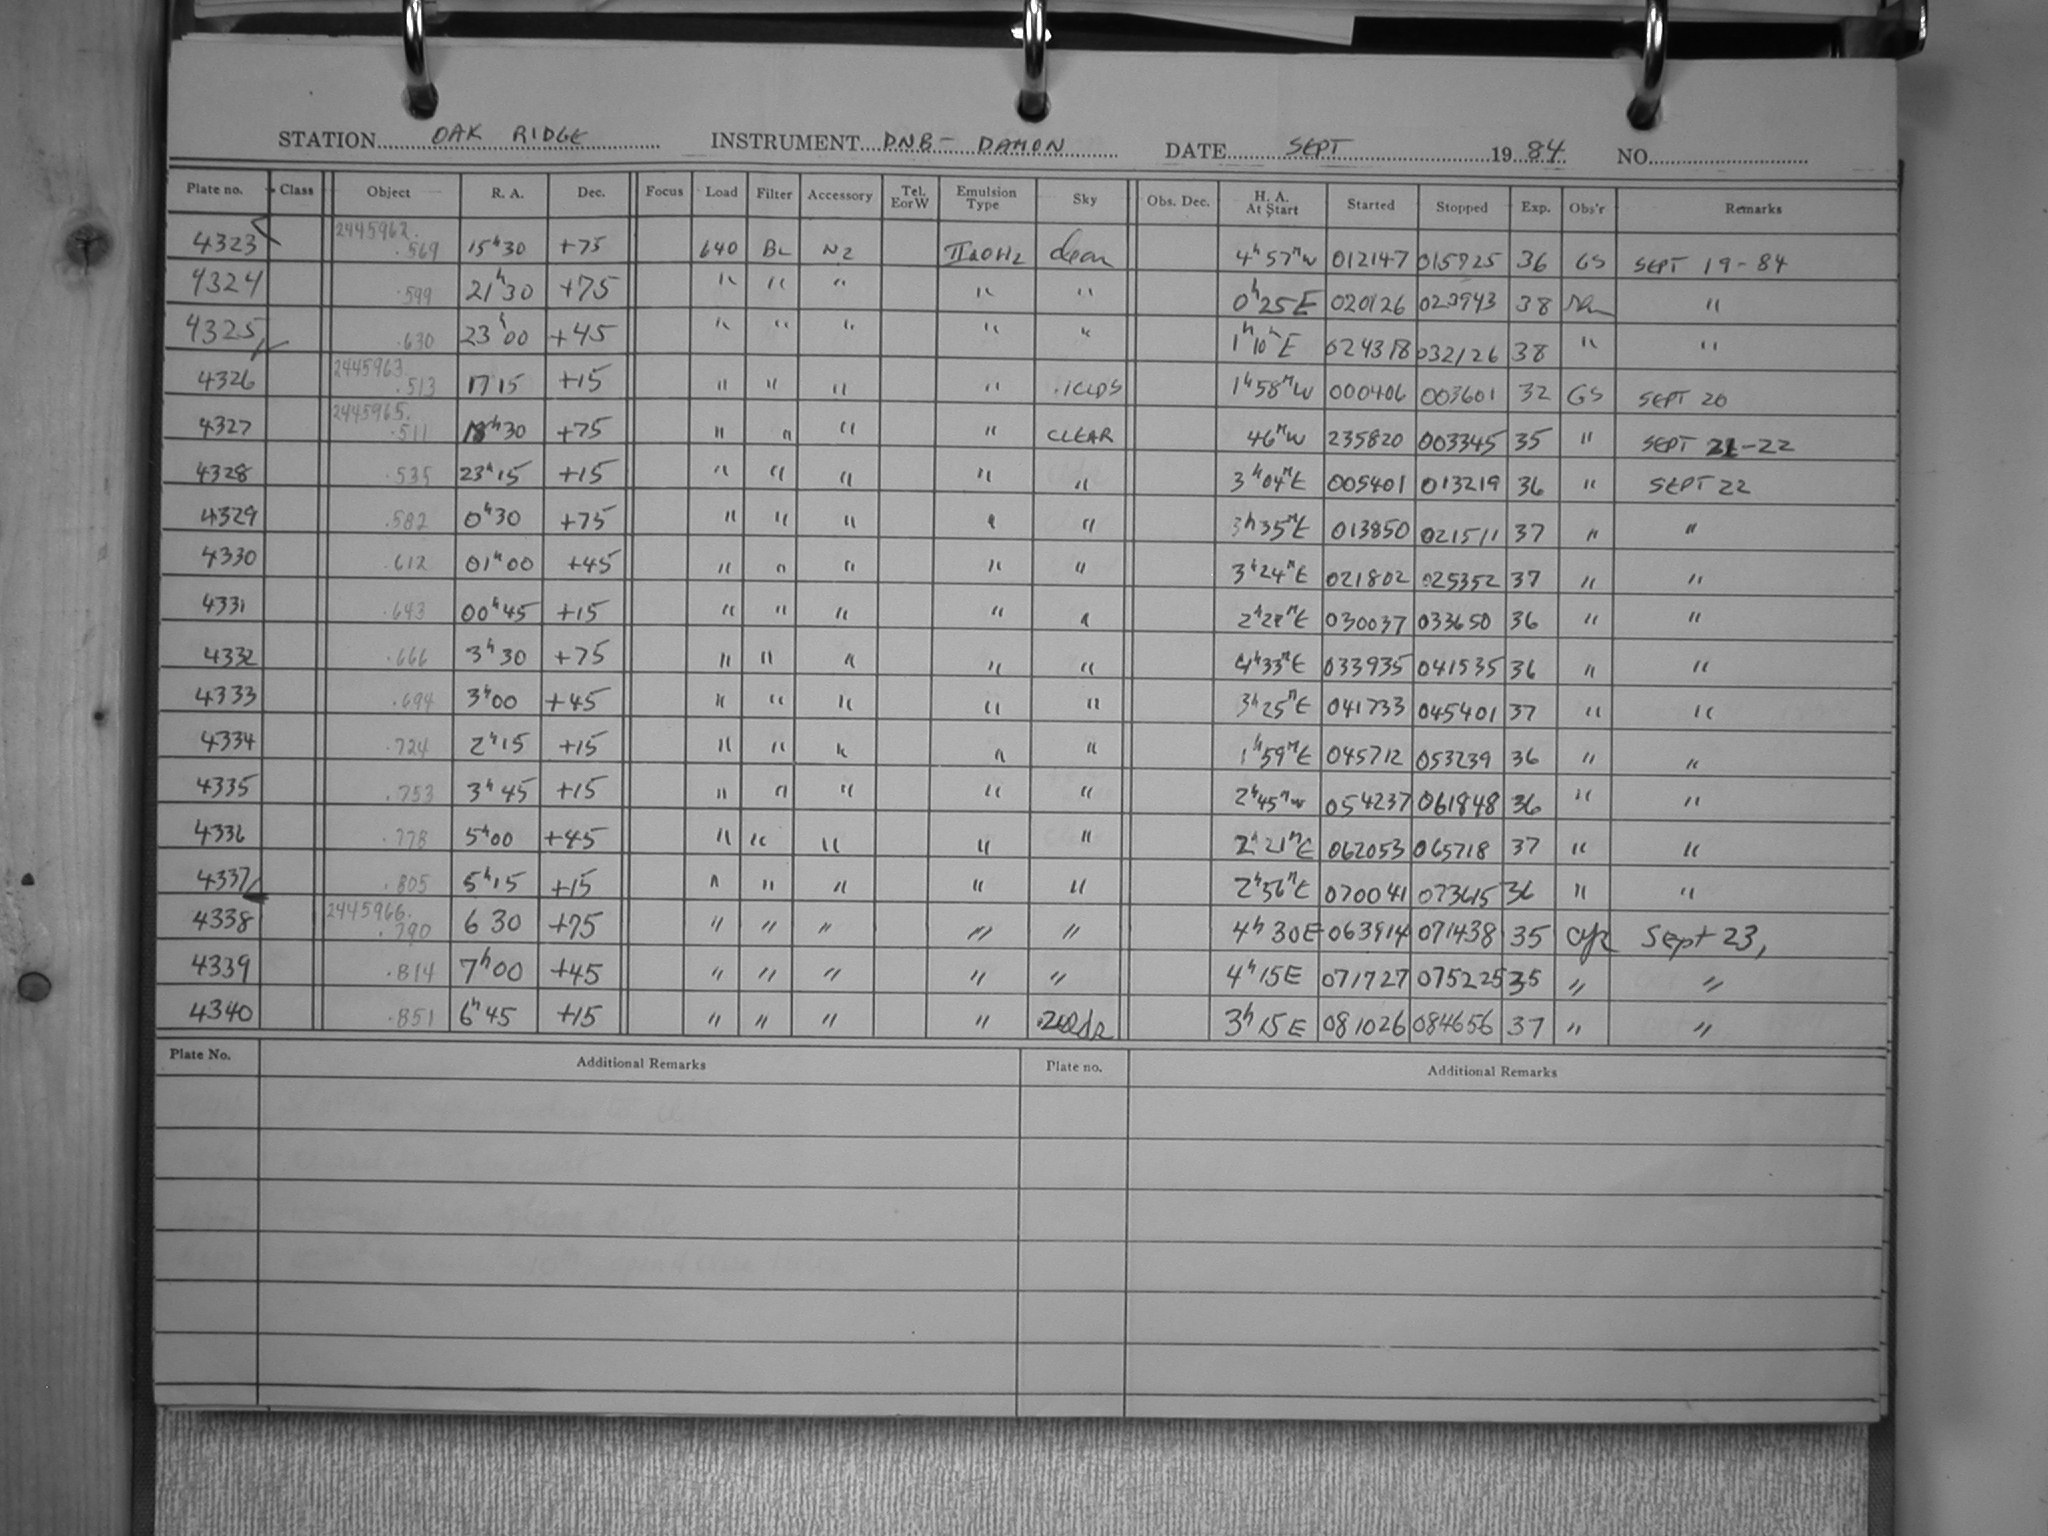 STATION OAK RIDGE INSTRUMENT DNB - DAMON DATE SEPT 1984 NO.
Plate no. Class Object R. A. Dec. Focus Load Filter Accessory Tel. E or W Emulsion Type Sky Obs. Dec. H. A. At Start Started Stopped Exp. Obs'r Remarks
4323 2445962. .569 15h30 +75 640 BL N2 IIaOH2 clear 4h57mW 012147 015925 36 GS SEPT 19-84
4324 .599 21h30 +75 " " " " " 0h25E 020126 023943 38 "
4325 .630 23h00 +45 " " " " " 1h10mE 024318 032126 38 " "
4326 2445963. .513 17 15 +15 " " " " .1CLDS 1h58mW 000406 003601 32 GS SEPT 20
4327 2445965. .511 18h30 +75 " " " " CLEAR 46mW 235820 003345 35 " SEPT 21-22
4328 .535 23h15 +15 " " " " " 3h04mE 005401 013219 36 " SEPT 22
4329 .582 0h30 +75 " " " " " 3h35mE 013850 021511 37 " "
4330 .612 01h00 +45 " " " " " 3h24mE 021802 025352 37 " "
4331 .643 00h45 +15 " " " " " 2h28mE 030037 033650 36 " "
4332 .666 3h30 +75 " " " " " 4h33mE 033935 041535 36 " "
4333 .694 3h00 +45 " " " " " 3h25mE 041733 045401 37 " "
4334 .724 2h15 +15 " " " " " 1h59mE 045712 053239 36 " "
4335 .753 3h45 +15 " " " " " 2h45mW 054237 061848 36 " "
4336 .778 5h00 +45 " " " " " 2h21mE 062053 065718 37 " "
4337 .805 5h15 +15 " " " " " 2h56mE 070041 073615 36 " "
4338 2445966. .790 6 30 +75 " " " " " 4h30E 063914 071438 35 Sept 23,
4339 .814 7h00 +45 " " " " " 4h15E 071727 075225 35 " "
4340 .851 6h45 +15 " " " " 3h15E 081026 084656 37 " "
Plate No. Additional Remarks Plate no. Additional Remarks